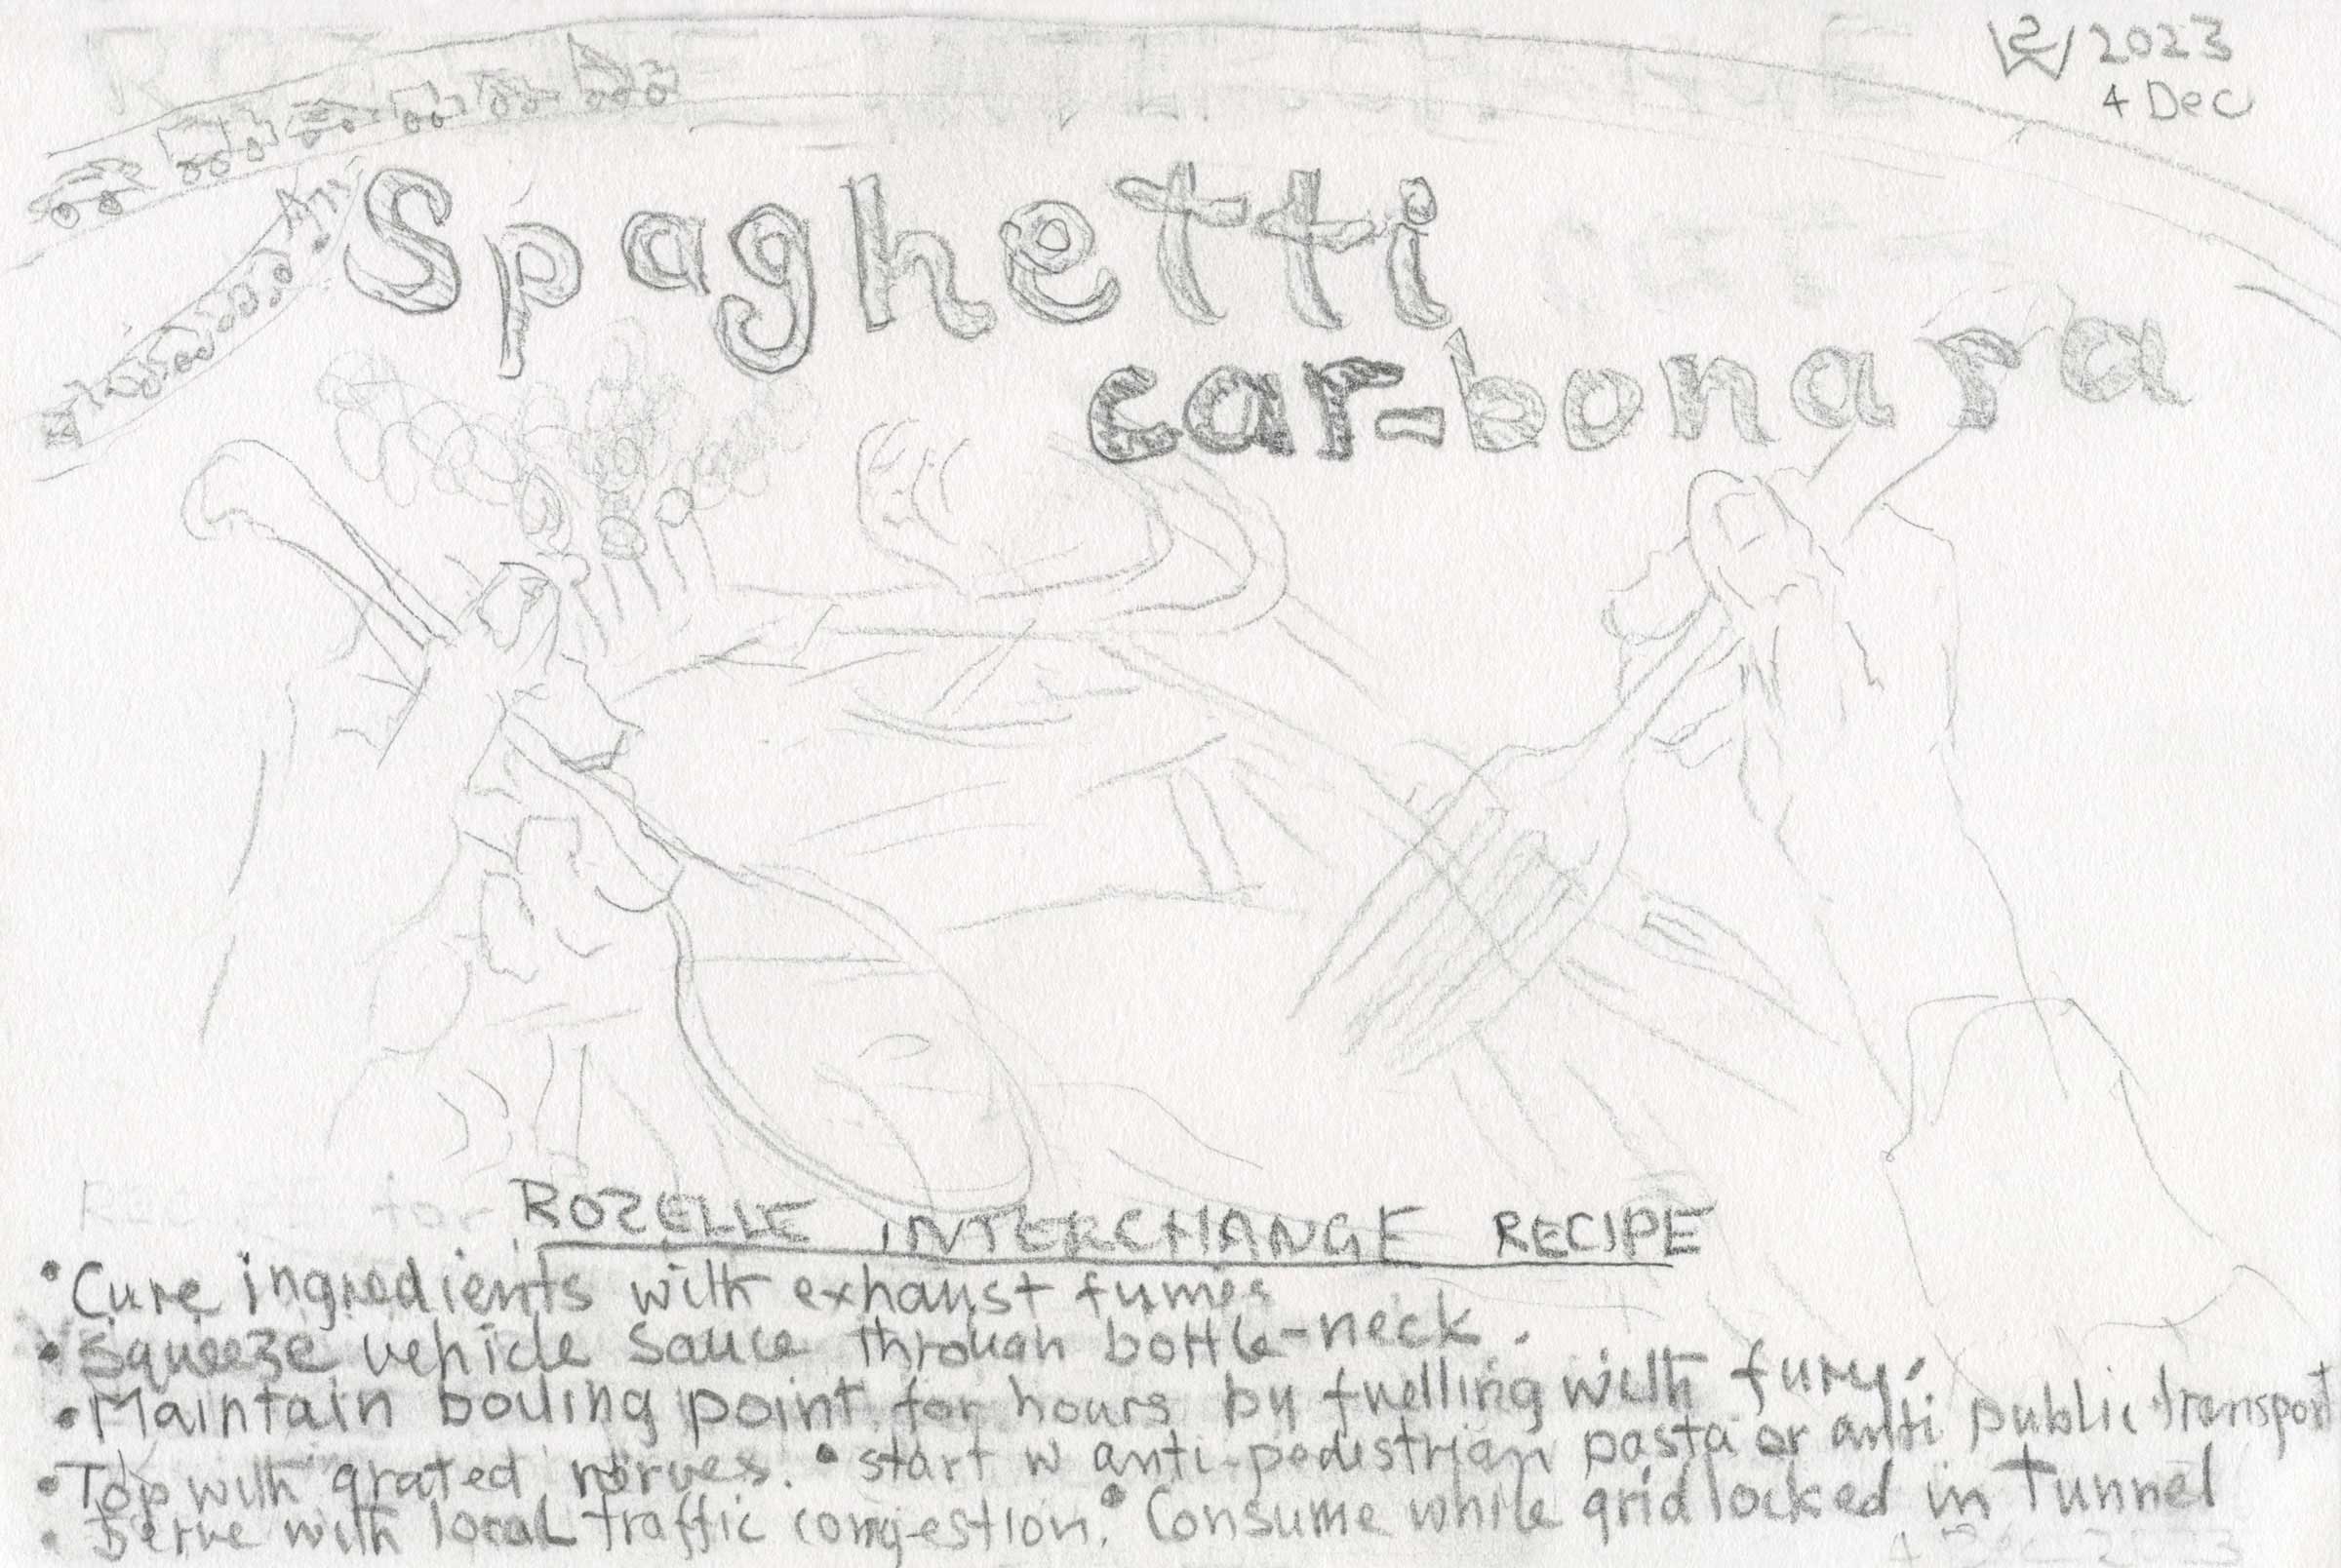 2023
4 Dec
Spaghetti
car-bonara
ROZELLE INTERCHANGE RECIPE
• Cure ingredients with exhaust fumes
• Squeeze vehicle sauce through bottle-neck.
• Maintain boiling point for hours by fuelling with fury.
• Top with grated nerves. • start w anti-pedestrian pasta or anti public transport
• Serve with local traffic congestion. • Consume while gridlocked in tunnel